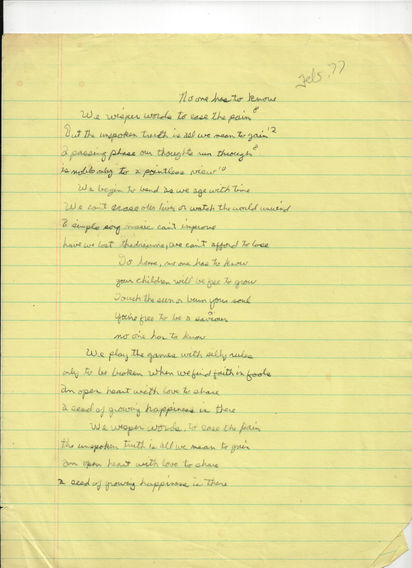 Feb. 77
No one has to know
We wisper words to ease the pain 8
But the unspoken truth is all we mean to gain 12
a passing phase our thoughts run through 8
to a pointless view 10
We begin to bend as we age with time
We can't erase our lives or watch the world unwind
a simple song music can't improve
have we lost the dreams, we can't afford to lose
no one has to know
your children will be free to grow
Touch the sun or burn your soul
your free to be a saviour
no one has to know
We play the games with silly rules
only to be broken when we find faith in fools
an open heart with love to share
a seed of growing happiness is there
We wisper words, to ease the pain
the unspoken truth is all we mean to gain
an open heart with love to share
a seed of growing happiness is there